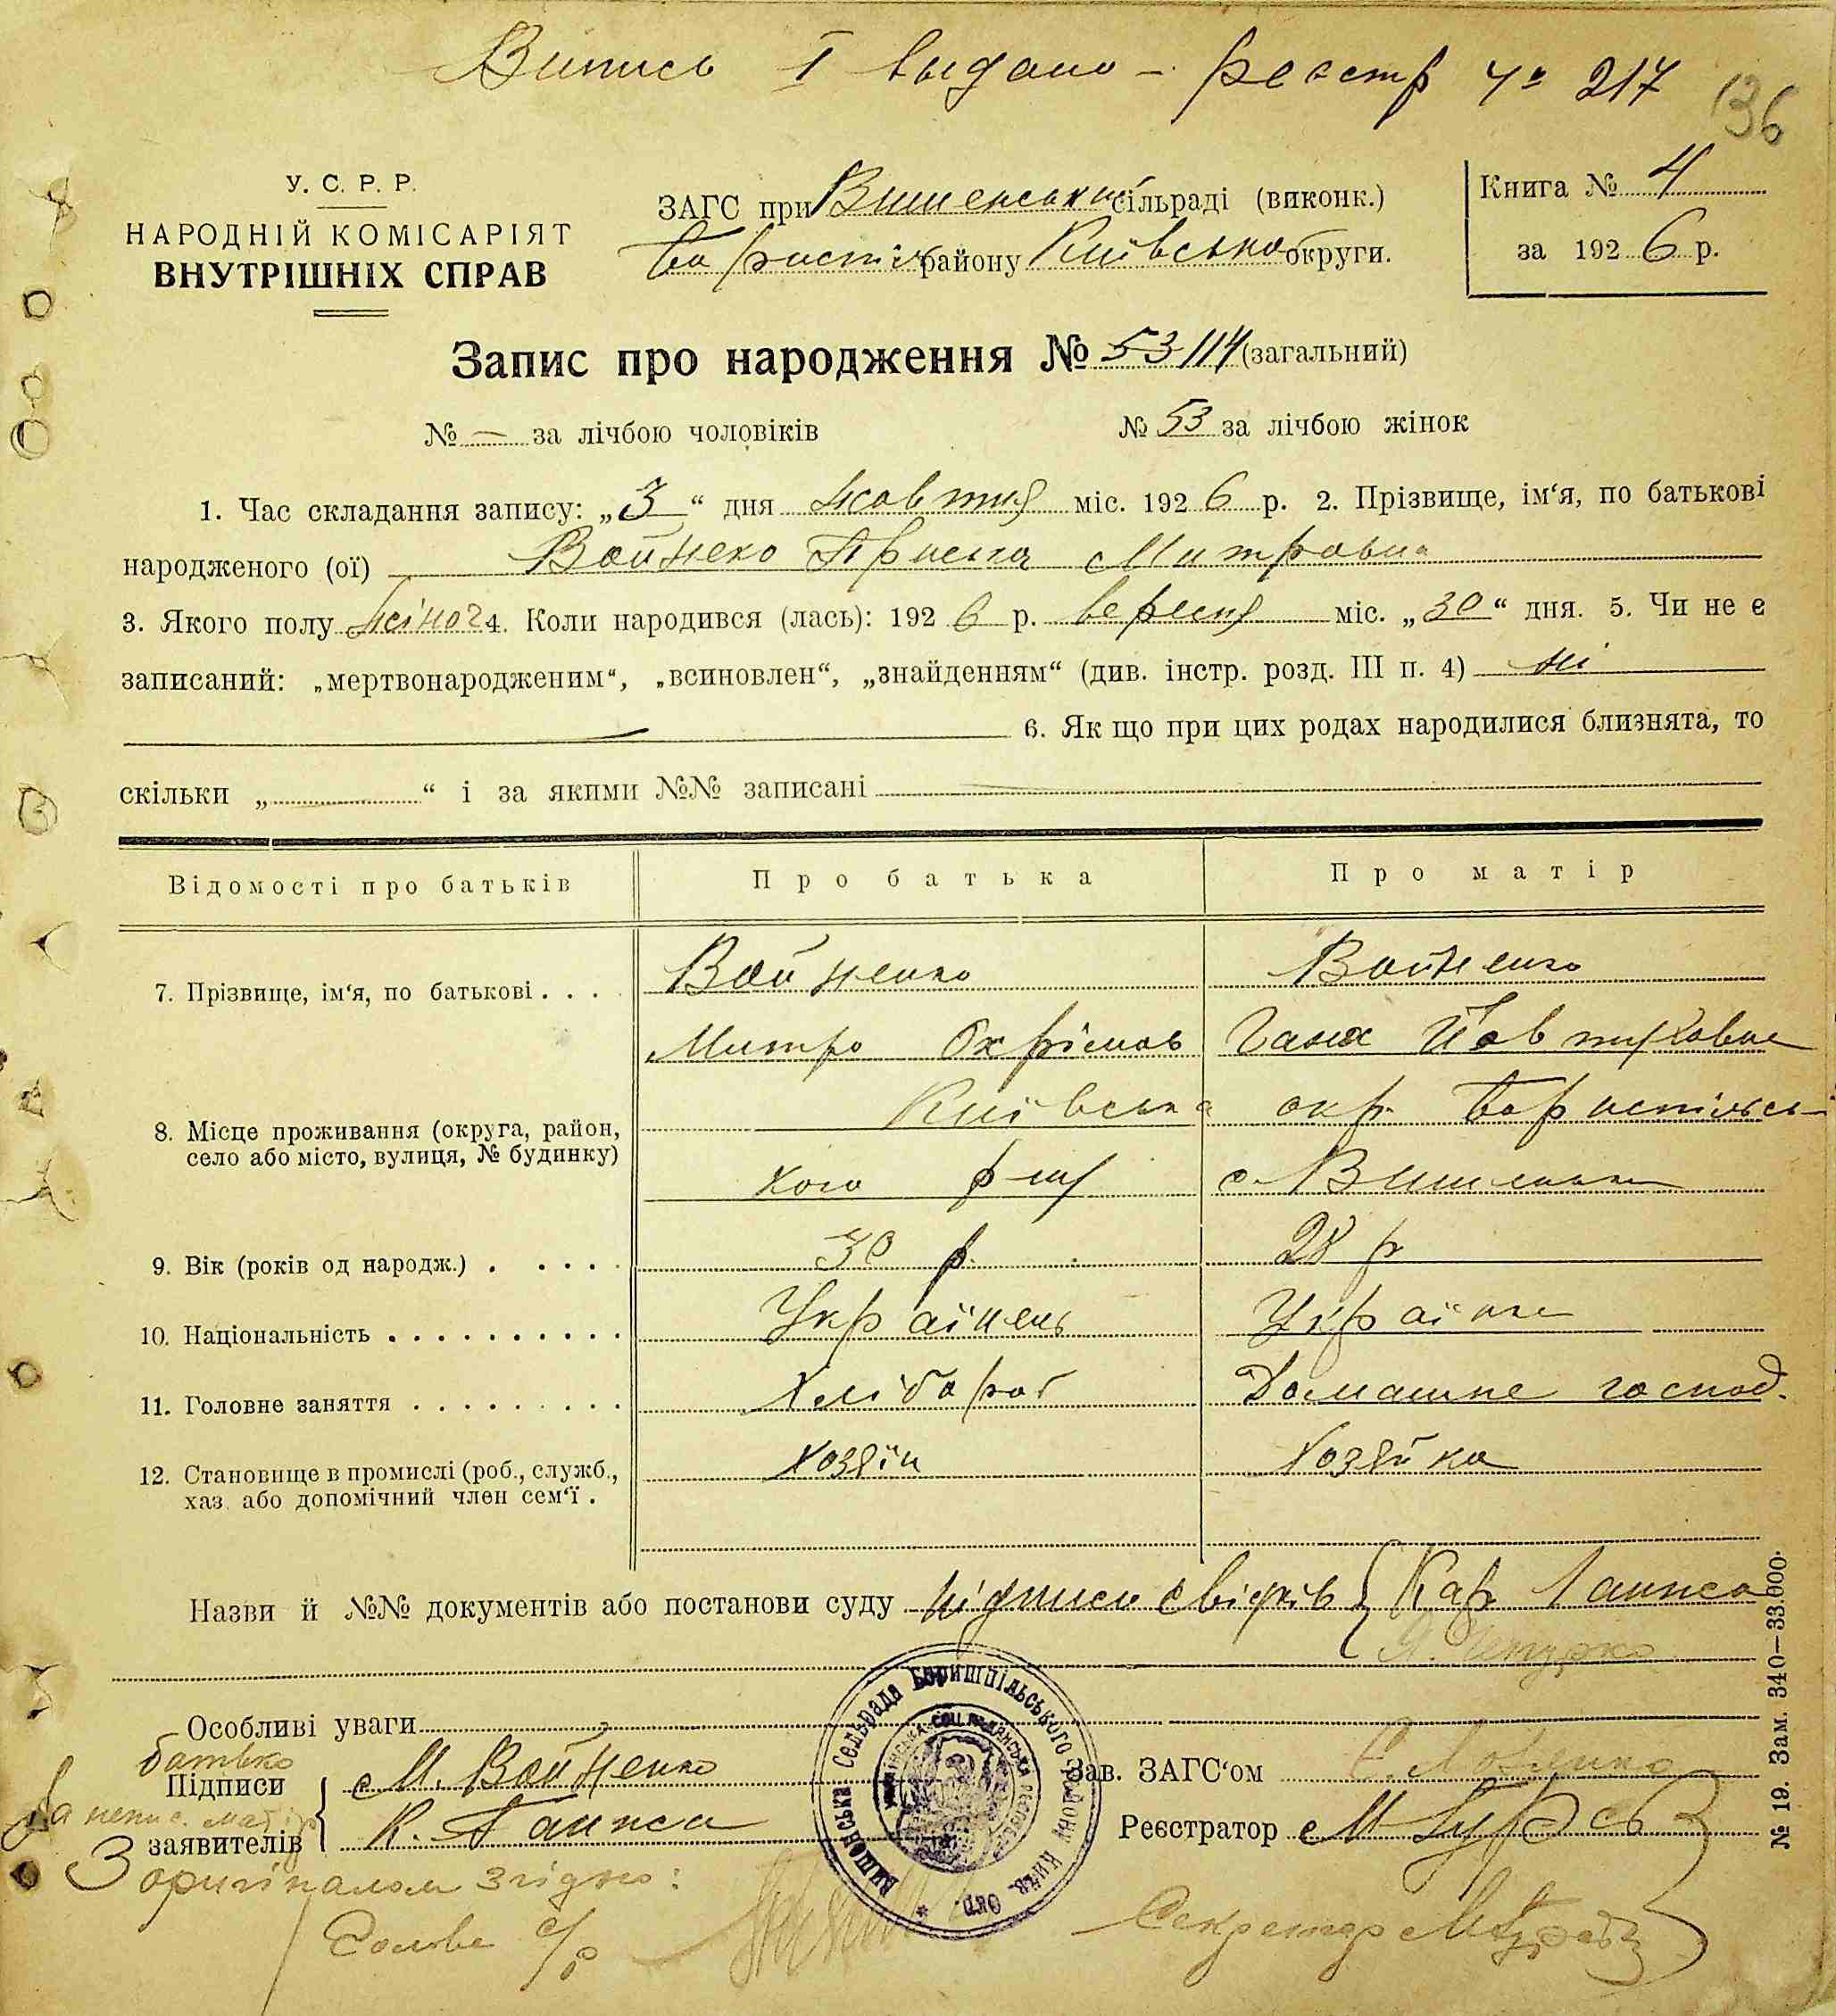 Випись I выдано - реєстр ч° 217
136
У. С. Р. Р.
НАРОДНІЙ КОМІСАРІЯТ
ВНУТРІШНІХ СПРАВ
ЗАГС при Вишеньський сільраді (виконк.)
району Київсько округи.
Книга № 4
за 1926 р.
Запис про народження № 53/114 (загальний)
№ — за лічбою чоловіків
№ 53 за лічбою жінок
1. Час складання запису: „3“ дня жовтня міс. 1926 р. 2. Прізвище, ім‘я, по батькові
народженого (ої) Войненко Приська Митровна
3. Якого полу жіноч 4. Коли народився (лась): 1926 р. вересня міс. „30“ дня. 5. Чи не є
записаний: „мертвонародженим“, „всиновлен“, „знайденням“ (див. інстр. розд. III п. 4) ні
— 6. Як що при цих родах народилися близнята, то
скільки „ “ і за якими №№ записані
Відомості про батьків
Про батька
Про матір
7. Прізвище, ім‘я, по батькові . . . .
Войненко
Войненко
Митро Охрімов
Ганя Йовтуховна
8. Місце проживання (округа, район,
село або місто, вулиця, № будинку)
Київська окр. Бориспільсь-
кого р-ну с. Вишеньки
9. Вік (років од народж.) . . . . .
30 р.
28 р
10. Національність . . . . . . . . . .
Українець
Українка
11. Головне заняття . . . . . . . . .
Хлібороб
Домашнє господ.
12. Становище в промислі (роб., служб.,
хаз. або допомічний член сем‘ї .
Хозяїн
Хозяйка
Назви й №№ документів або постанови суду підписи свідків { Кар
Особливі уваги
батько
Підписи
заявителів
М. Войненко
К.
Зав. ЗАГС‘ом
Реєстратор М
Вишонська Сельрада Боришпільського району Київ. Окр.
З оригіналом згідно:
Голова с/р
Секретар
№ 19. Зам. 340—33.000.